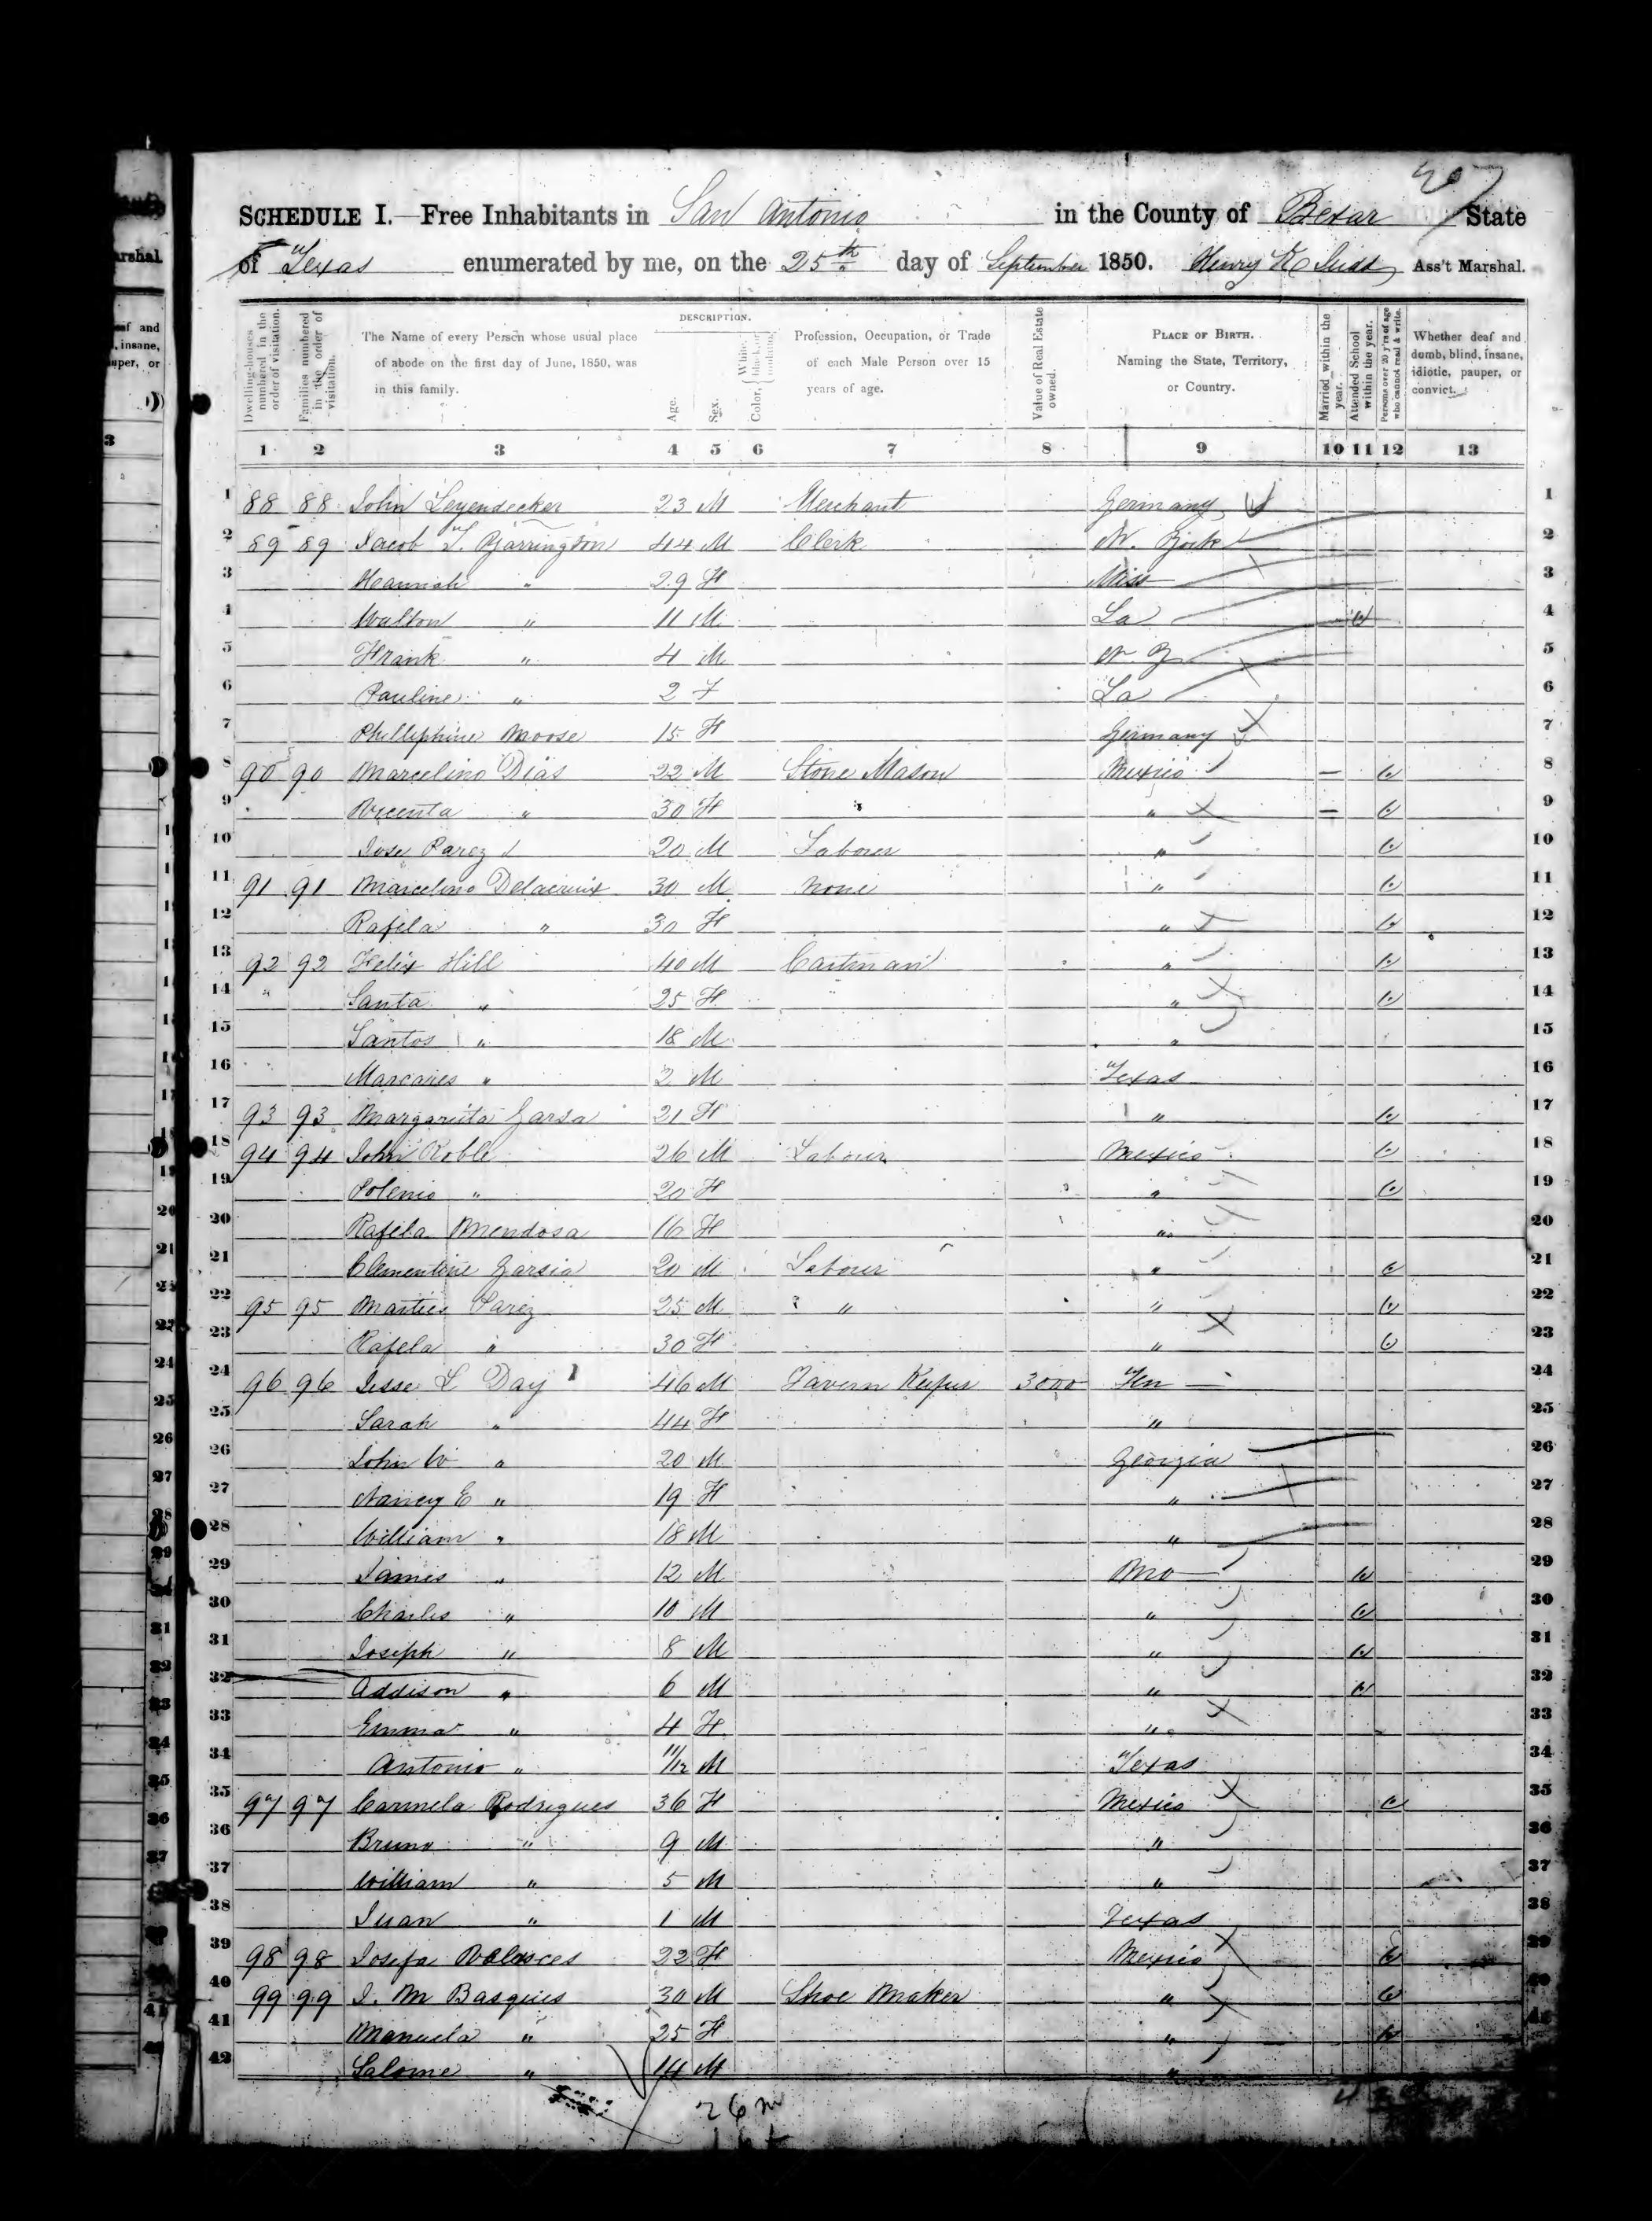 207
SCHEDULE I.—Free Inhabitants in San Antonio in the County of Bexar State
of Texas enumerated by me, on the 25th day of September 1850. Henry K Judd Ass't Marshal.
Dwelling-houses numbered in the order of visitation.
Families numbered in the order of visitation.
The Name of every Person whose usual place of abode on the first day of June, 1850, was in this family.
DESCRIPTION.
Age.
Sex.
Color, White, black, or mulatto.
Profession, Occupation, or Trade of each Male Person over 15 years of age.
Value of Real Estate owned.
PLACE OF BIRTH. Naming the State, Territory, or Country.
Married within the year.
Attended School within the year.
Persons over 20 y'rs of age who cannot read & write.
Whether deaf and dumb, blind, insane, idiotic, pauper, or convict.
1 2 3 4 5 6 7 8 9 10 11 12 13
1 88 88 John Leyendecker 23 M Merchant Germany 1
2 89 89 Jacob T. Yarrington 44 M Clerk N. York 2
3 Hannah " 29 F Miss 3
4 Walton " 11 M La 4
5 Frank " 4 M N. Y 5
6 Pauline " 2 F La 6
7 Philliphine Moose 15 F Germany 7
8 90 90 Marcelino Dias 22 M Stone Mason Mexico 8
9 Vicenta " 30 F " 9
10 Jose Parez 20 M Laborer " 10
11 91 91 Marcelino Delacruix 30 M None " 11
12 Rafela " 30 F " 12
13 92 92 Felix Hill 40 M Cartman " 13
14 Santa " 25 F " 14
15 Santos " 18 M " 15
16 " 2 M Texas 16
17 93 93 Margarita Garsa 21 F " 17
18 94 94 John Roble 26 M Labour Mexico 18
19 Polenio " 20 F " 19
20 Rafela Mendosa 16 F " 20
21 Clementine Garsia 20 M Labour " 21
22 95 95 Parez 25 M " " 22
23 Rafela " 30 F " 23
24 96 96 Jesse L Day 46 M Tavern Keeper 3000 Ten 24
25 Sarah " 44 F " 25
26 John W " 20 M Georgia 26
27 Nancy E " 19 F " 27
28 William " 18 M " 28
29 James " 12 M Mo 29
30 Charles " 10 M " 30
31 Joseph " 8 M " 31
32 Addison " 6 M " 32
33 Emma " 4 F " 33
34 Antonio " 11/12 M Texas 34
35 97 97 Carmela Rodrigues 36 F Mexico 35
36 Bruno " 9 M " 36
37 William " 5 M " 37
38 Juan " 1 M Texas 38
39 98 98 Josefa 22 F Mexico 39
40 99 99 J. M Basques 30 M Shoe Maker " 40
41 Manuela " 25 F " 41
42 Salome " 14 M "
26 m